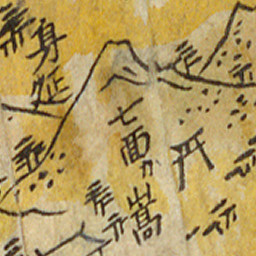 身延
七面カ嵩